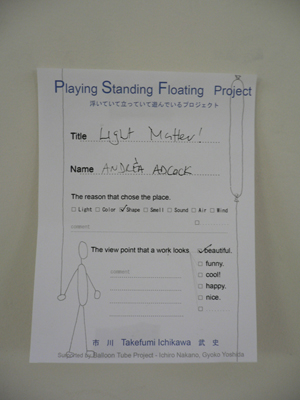 Playing Standing Floating Project
浮いていて立っていて遊んでいるプロジェクト
Title Light Matter!
Name ANDREA ADCOCK
The reason that chose the place.
□ Light □ Color ☑ Shape □ Smell □ Sound □ Air □ Wind
□
comment
The view point that a work looks ☑ beautiful.
comment
□ funny.
□ cool!
□ happy.
□ nice.
□
市 川 Takefumi Ichikawa 武 史
Supported by Balloon Tube Project - Ichiro Nakano, Gyoko Yoshida